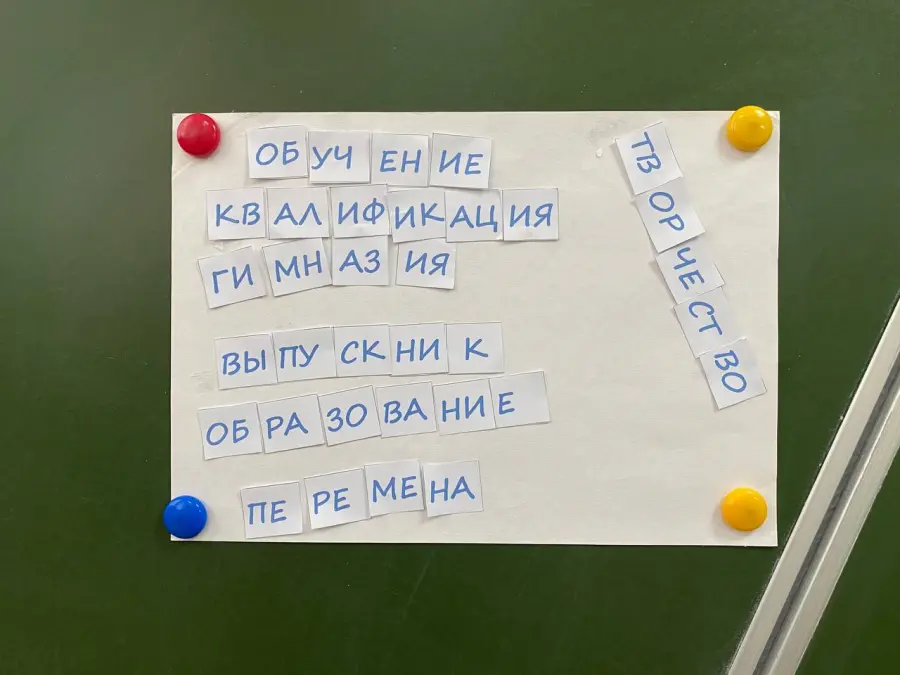 ОБУЧЕНИЕ
КВАЛИФИКАЦИЯ
ГИМНАЗИЯ
ВЫПУСКНИК
ОБРАЗОВАНИЕ
ПЕРЕМЕНА
ТВОРЧЕСТВО